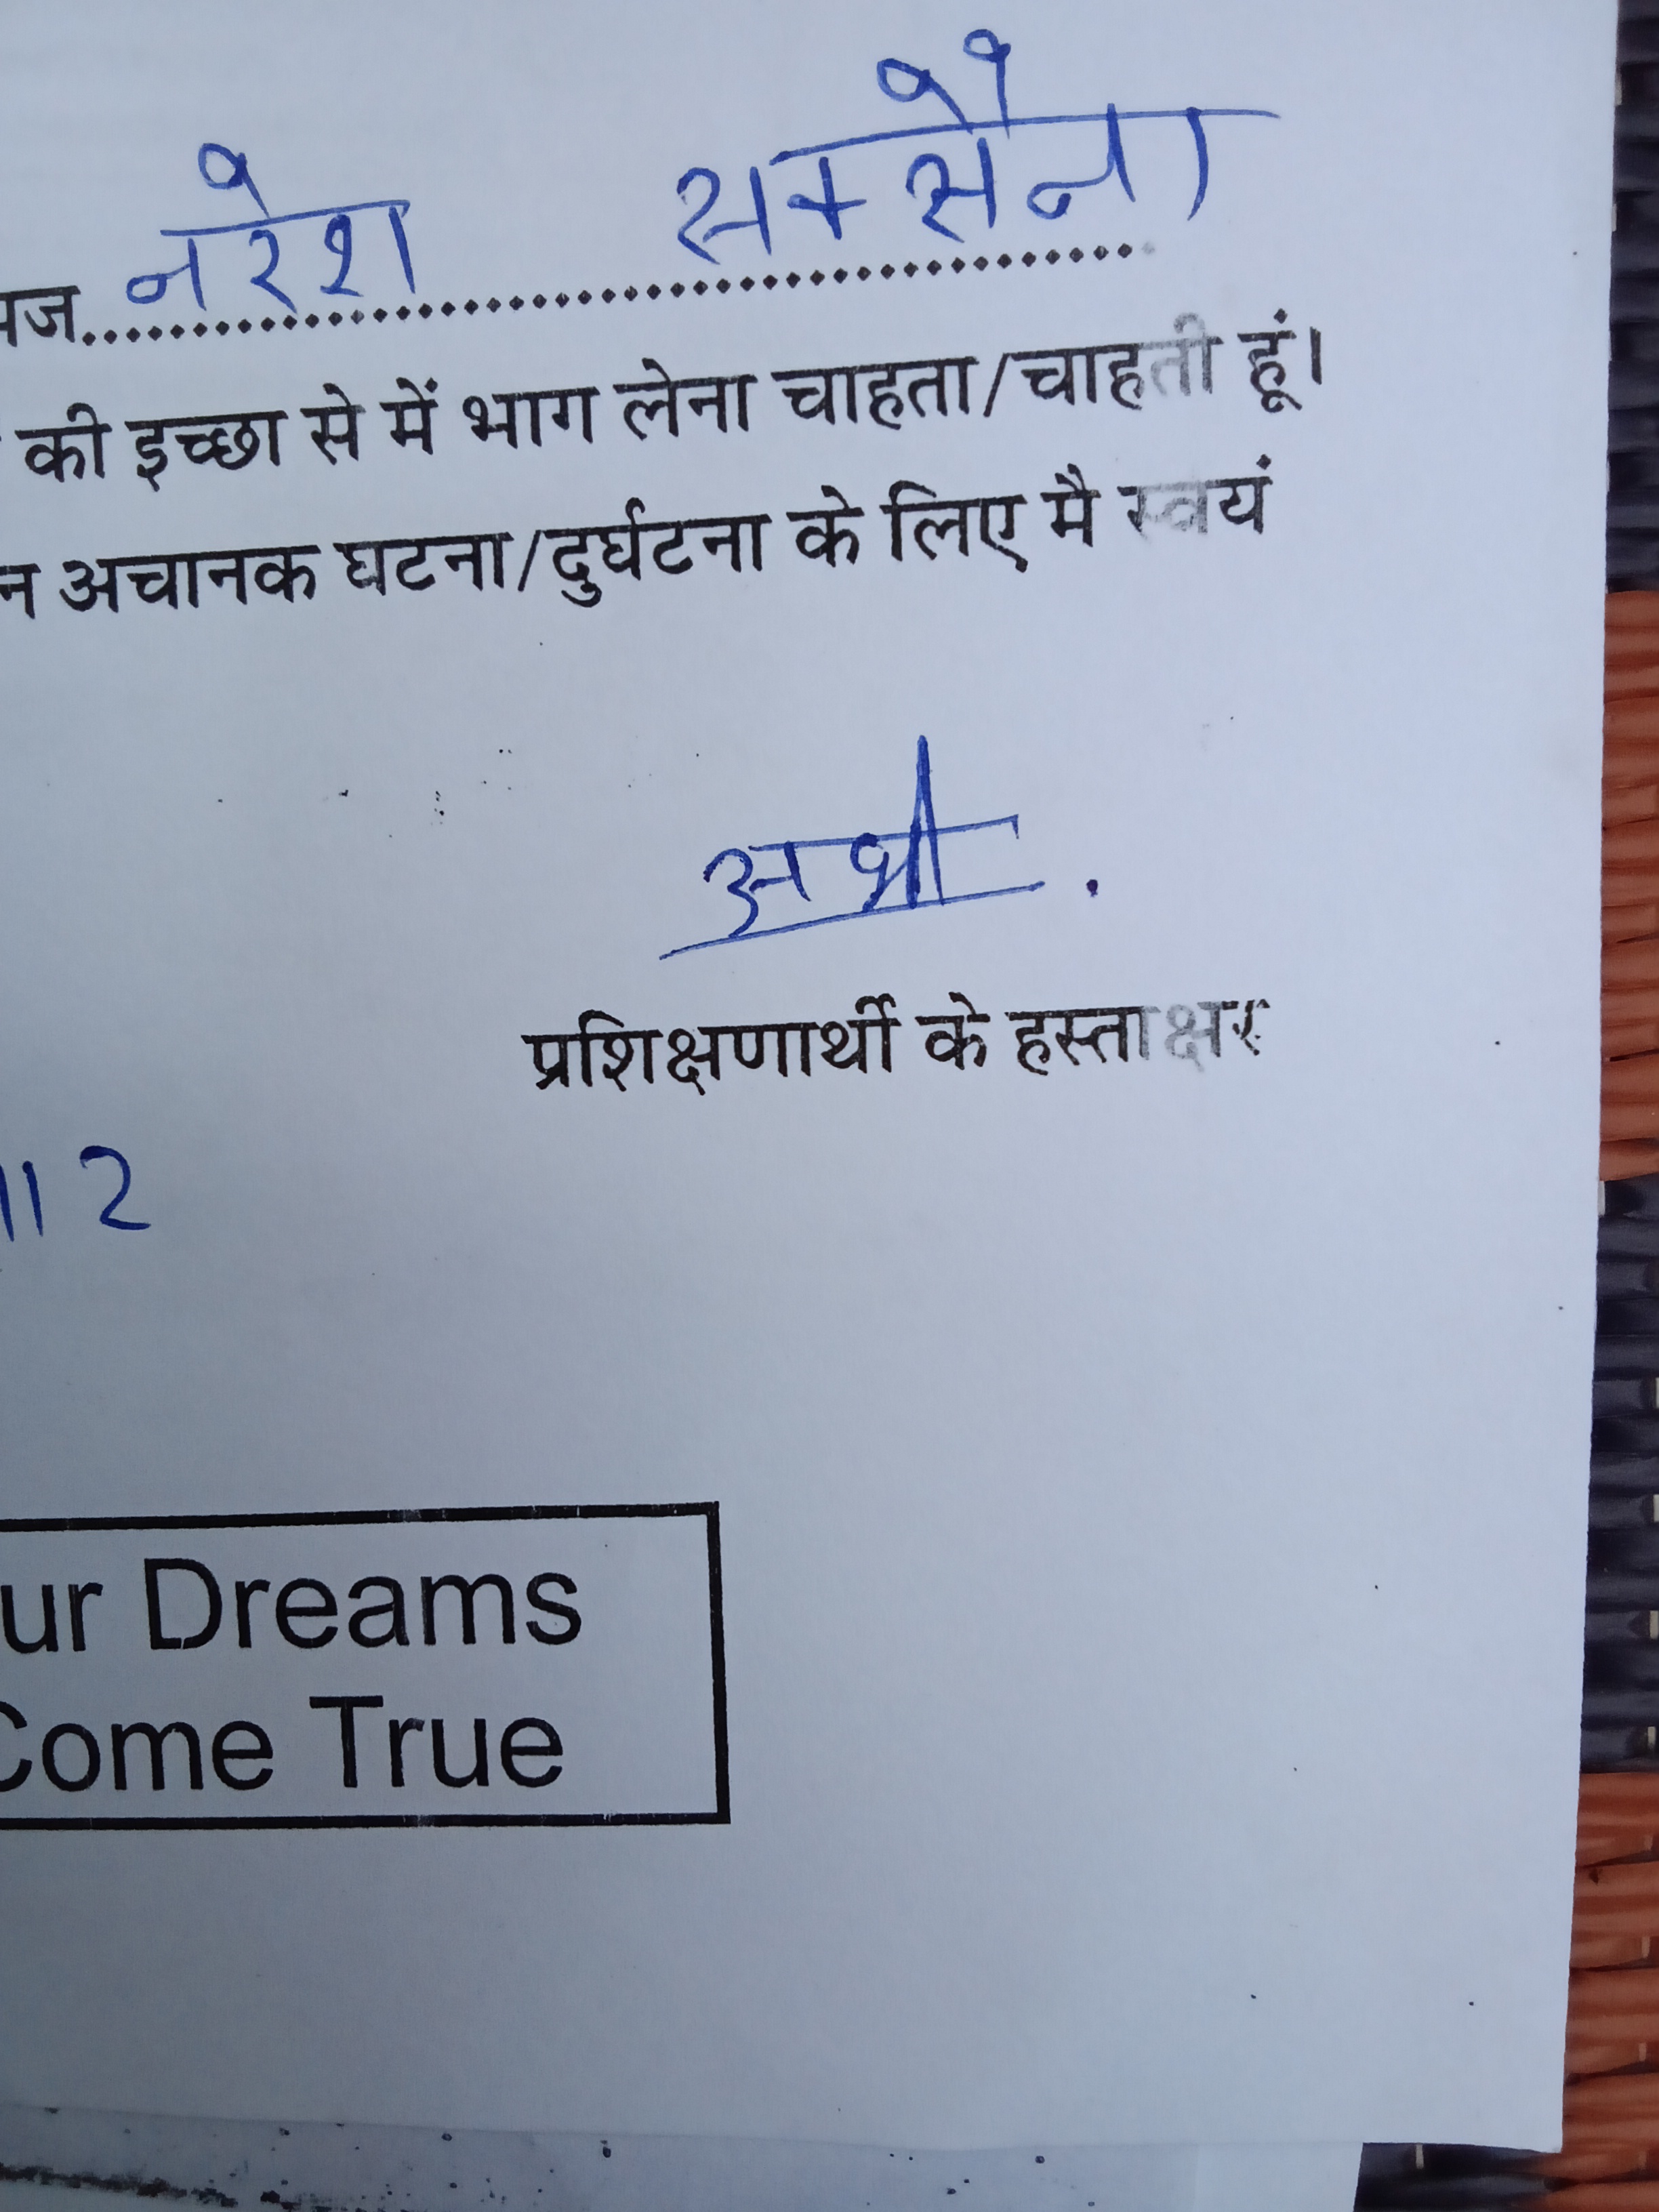 नरेश सक्सैना
की इच्छा से में भाग लेना चाहता/चाहती हूं।
अचानक घटना/दुर्घटना के लिए मै स्वयं
प्रशिक्षणार्थी के हस्ताक्षर
112
ur Dreams
Come True